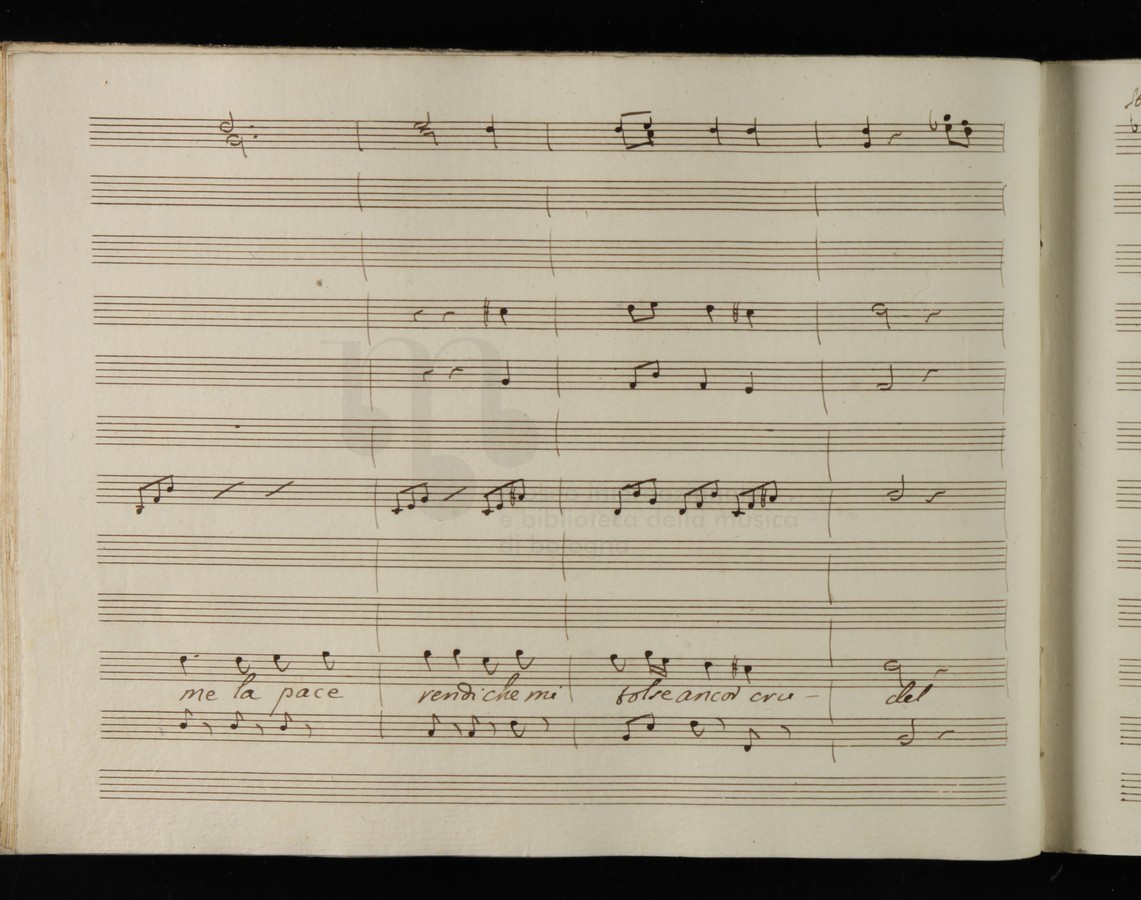 museo in
e biblioteca della musica
di bologna
me la pace rendi che mi tolse ancor cru - del